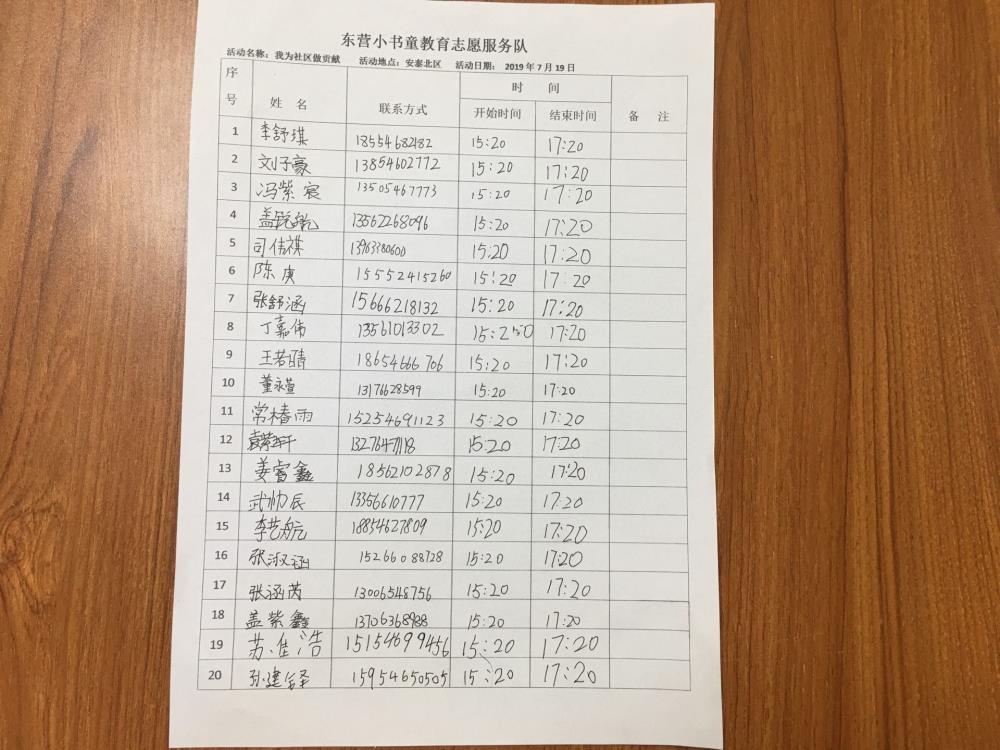 东营小书童教育志愿服务队
活动名称：我为社区做贡献 活动地点：安泰北区 活动日期： 2019年7月19日
序号 姓名 联系方式 时间 备注
开始时间 结束时间
1 李舒琪 18554682182 15:20 17:20
2 刘子豪 13854602772 15:20 17:20
3 冯紫宸 13505467773 15:20 17:20
4 盖 13562268096 15:20 17:20
5 司伟祺 13963380600 15:20 17:20
6 陈庚 15552415260 15:20 17:20
7 张舒涵 15666218132 15:20 17:20
8 丁嘉伟 13561013302 15:20 17:20
9 王若晴 18654666706 15:20 17:20
10 董永萱 13176628599 15:20 17:20
11 常椿雨 15254691123 15:20 17:20
12 袁紫轩 15:20 17:20
13 姜睿鑫 18562102878 15:20 17:20
14 武帅辰 13356610777 15:20 17:20
15 李艺航 18854627809 15:20 17:20
16 张淑涵 15266088728 15:20 17:20
17 张涵芮 13006548756 15:20 17:20
18 盖紫鑫 13706368988 15:20 17:20
19 苏准浩 15154699456 15:20 17:20
20 孙建铎 15954650505 15:20 17:20